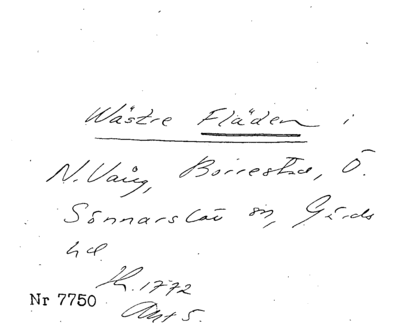 Wästre Fläden i
N. Vång, Borrestad, Ö.
Sönnarslöv sn, Gärds
hd
1772
Nr 7750
Akt 5.